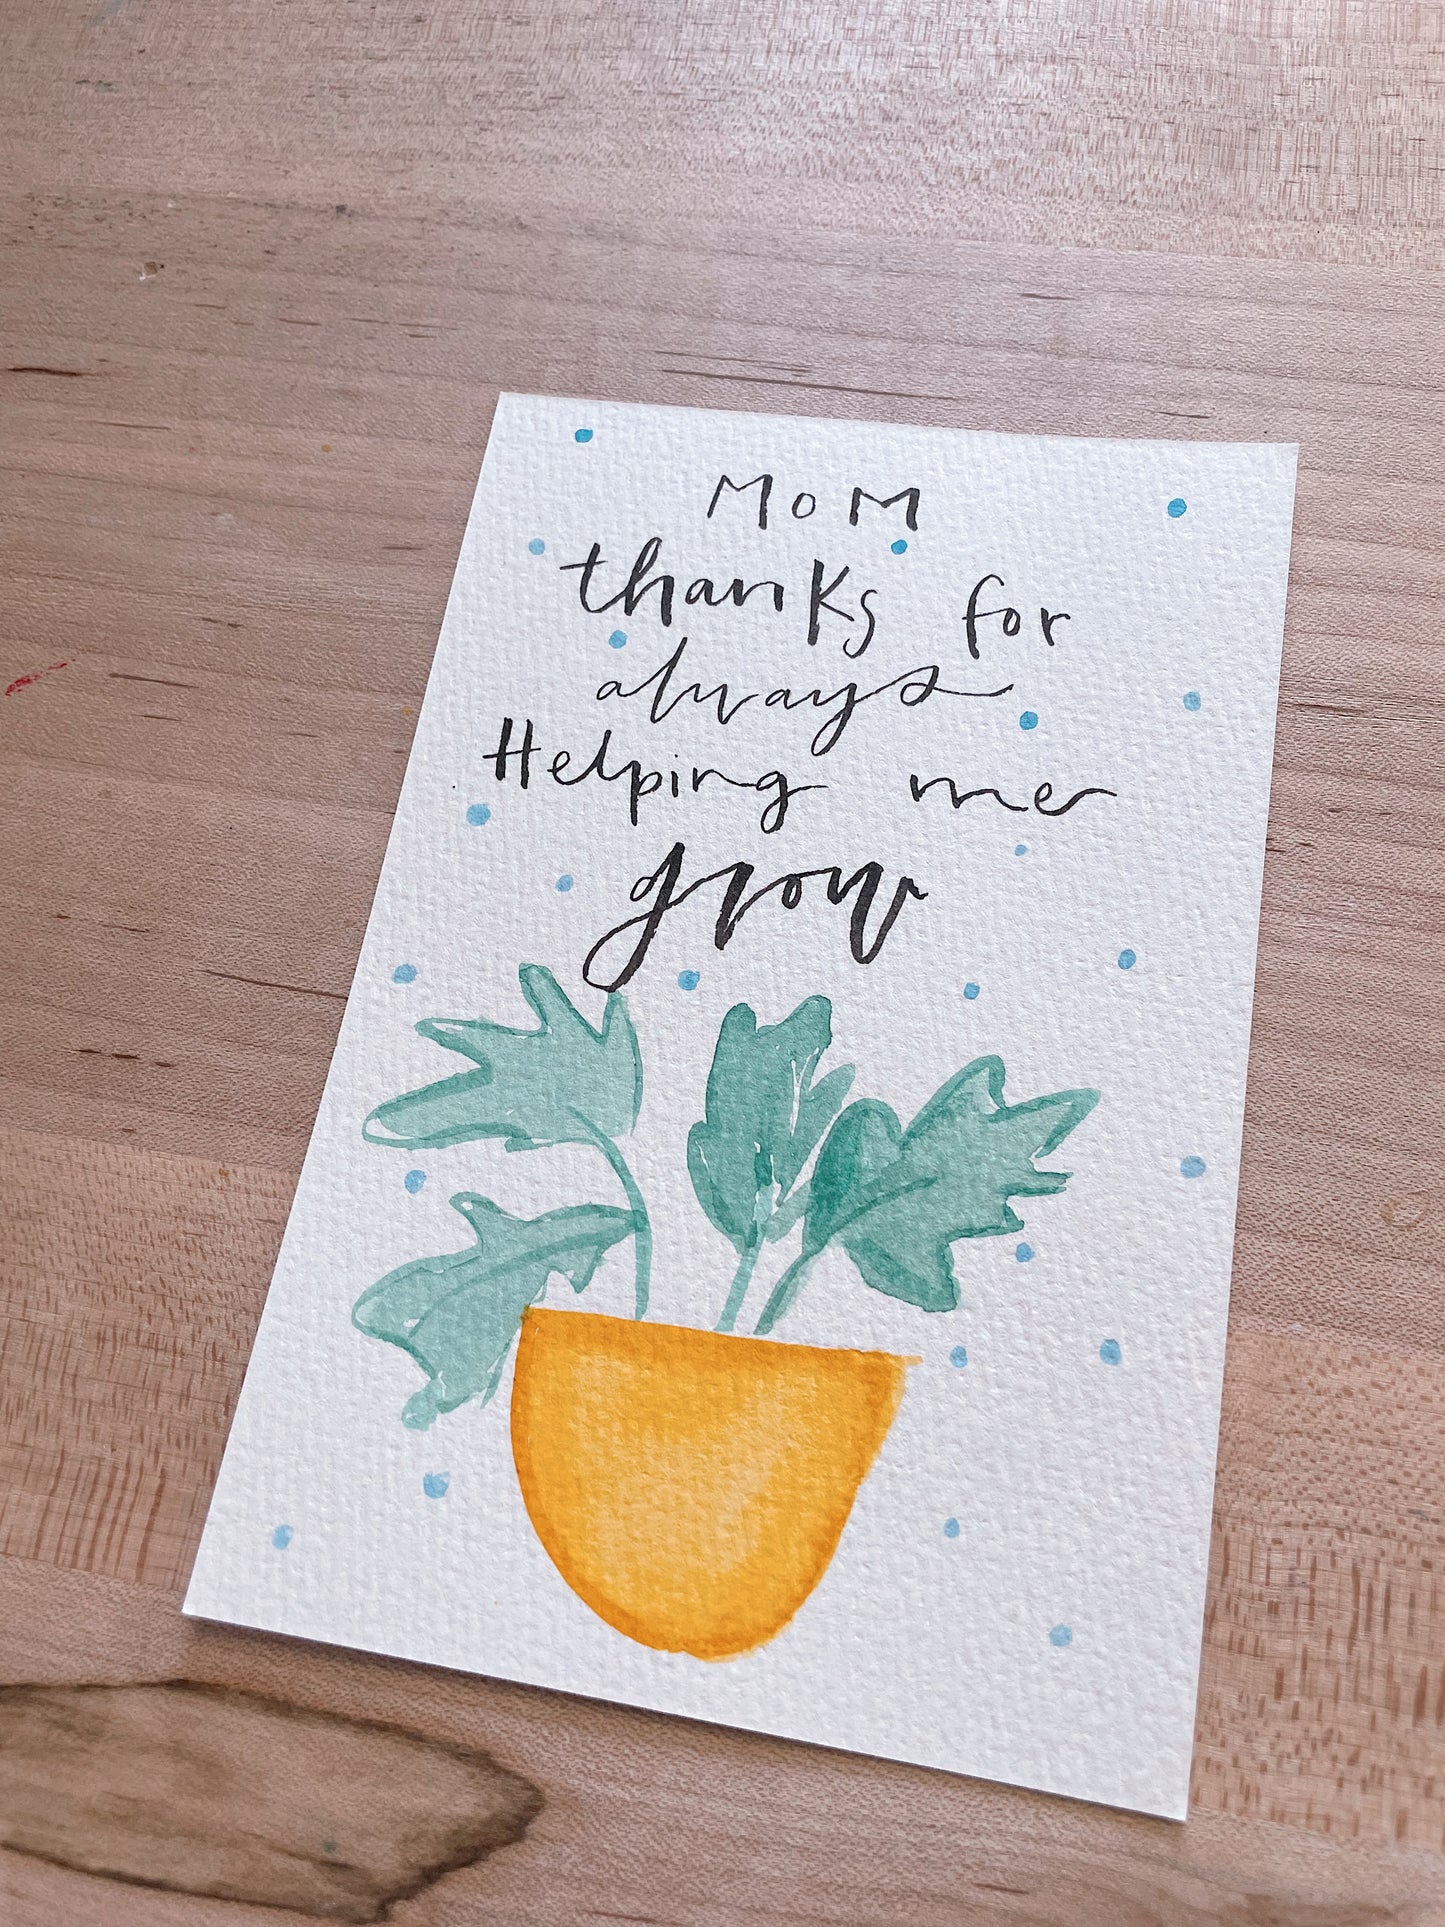 MoM
thanks for
always
Helping me
grow